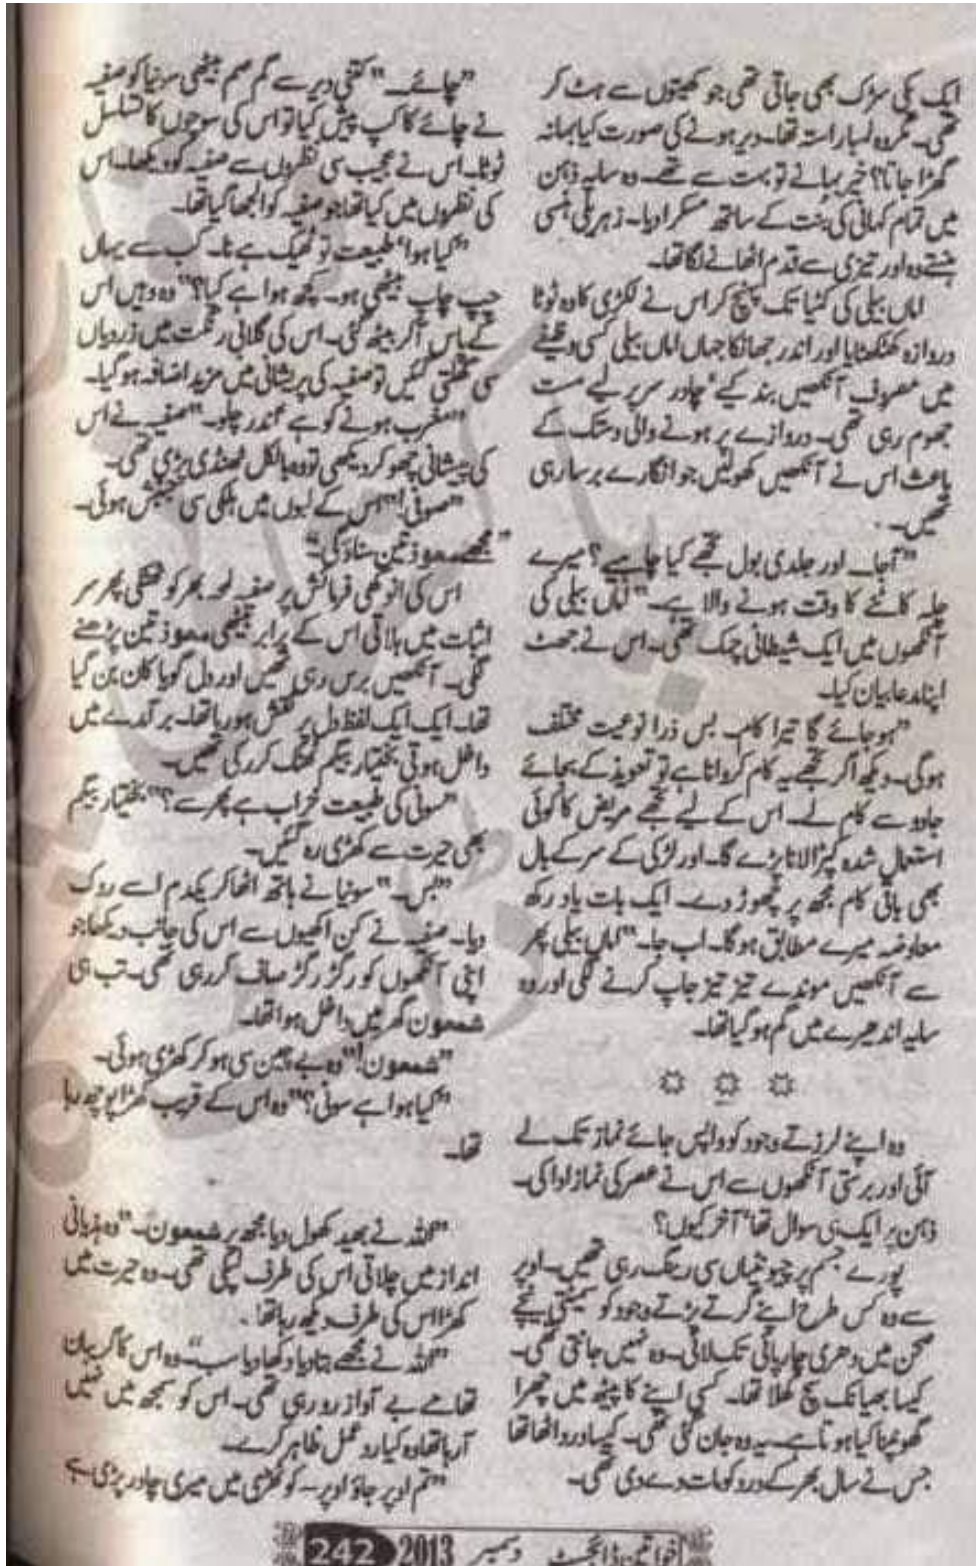 ایک پکی سڑک بھی جاتی تھی جو کھیتوں سے ہٹ کر
تھی۔ مگر وہ لمبا راستہ تھا۔ دیر ہونے کی صورت کیا بہانہ
گھڑا جاتا؟ خیر بہانے تو بہت سے تھے۔ وہ سایہ ذہن
میں تمام کہانی کی بنت کے ساتھ مسکرا دیا۔ زہریلی ہنسی
ہنستے وہ اور تیزی سے قدم اٹھانے لگا تھا۔
اماں بیلی کی کٹیا تک پہنچ کر اس نے لکڑی کا وہ ٹوٹا
دروازہ کھٹکھٹایا اور اندر جھانکا جہاں اماں بیلی کسی وظیفے
میں مصروف آنکھیں بند کیے' چادر سر پر لیے مست
جھوم رہی تھی۔ دروازے پر ہونے والی دستک کے
باعث اس نے آنکھیں کھولیں جو انگارے برسا رہی
تھیں۔
"آجا۔ اور جلدی بول تجھے کیا چاہیے؟ میرے
چلہ کاٹنے کا وقت ہونے والا ہے۔" اماں بیلی کی
آنکھوں میں ایک شیطانی چمک تھی۔ اس نے جھٹ
اپنا مدعا بیان کیا۔
"ہو جائے گا تیرا کام۔ بس ذرا نوعیت مختلف
ہوگی۔ دیکھ اگر تجھے یہ کام کروانا ہے تو تعویذ کے بجائے
جادو سے کام لے۔ اس کے لیے تجھے مریض کا کوئی
استعمال شدہ کپڑا لانا پڑے گا۔ اور لڑکی کے سر کے بال
بھی باقی کام مجھ پر چھوڑ دے۔ ایک بات یاد رکھ
معاوضہ میرے مطابق ہوگا۔ اب جا۔" اماں بیلی پھر
سے آنکھیں موندے تیز تیز جاپ کرنے لگی اور وہ
سایہ اندھیرے میں گم ہو گیا تھا۔
وہ اپنے لرزتے وجود کو واپس جائے نماز تک لے
آئی اور برستی آنکھوں سے اس نے عصر کی نماز ادا کی۔
ذہن پر ایک ہی سوال تھا' آخر کیوں؟
پورے جسم پر چیونٹیاں سی رینگ رہی تھیں۔ اوپر
سے وہ کس طرح اپنے گرتے پڑتے وجود کو گھسیٹتی نیچے
صحن میں دھری چارپائی تک لائی۔ وہ نہیں جانتی تھی۔
کیسا بھیانک سچ کھلا تھا۔ کسی اپنے کا پیٹھ میں چھرا
گھونپنا کیا ہوتا ہے۔ یہ وہ جان گئی تھی۔ کیسا درد اٹھا تھا
جس نے سال بھر کے درد کو مات دے دی تھی۔
"چائے۔" کتنی دیر سے گم صم بیٹھی سونیا کو صفیہ
نے چائے کا کپ پیش کیا تو اس کی سوچوں کا تسلسل
ٹوٹا۔ اس نے عجیب سی نظروں سے صفیہ کو دیکھا۔ اس
کی نظروں میں کیا تھا جو صفیہ کو الجھا گیا تھا۔
"کیا ہوا' طبیعت تو ٹھیک ہے نا۔ کب سے یہاں
چپ چاپ بیٹھی ہو۔ کچھ ہوا ہے کیا؟" وہ وہیں اس
کے پاس آکر بیٹھ گئی۔ اس کی گلابی رنگت میں زردیاں
سی گھلتی گئیں تو صفیہ کی پریشانی میں مزید اضافہ ہو گیا۔
"مغرب ہونے کو ہے' اندر چلو۔" صفیہ نے اس
کی پیشانی چھو کر دیکھی تو وہ بالکل ٹھنڈی پڑی تھی۔
"صوفی!" اس کے لبوں میں ہلکی سی جنبش ہوئی۔
"مجھے معوذتین سناؤ گی۔"
اس کی انوکھی فرمائش پر صفیہ لمحہ بھر کو ٹھٹکی پھر سر
اثبات میں ہلاتی اس کے برابر بیٹھی معوذتین پڑھنے
لگی۔ آنکھیں برس رہی تھیں اور دل گویا کان بن گیا
تھا۔ ایک ایک لفظ دل پر نقش ہو رہا تھا۔ برآمدے میں
داخل ہوتی بختیار بیگم ٹھٹک کر رکی تھیں۔
"سونی کی طبیعت خراب ہے پھر سے؟" بختیار بیگم
بھی حیرت سے کھڑی رہ گئیں۔
"بس۔" سونیا نے ہاتھ اٹھا کر یکدم اسے روک
دیا۔ صفیہ نے کن اکھیوں سے اس کی جانب دیکھا جو
اپنی آنکھوں کو رگڑ رگڑ صاف کر رہی تھی۔ تب ہی
شمعون گھر میں داخل ہوا تھا۔
"شمعون!" وہ بے چین سی ہو کر کھڑی ہوئی۔
"کیا ہوا ہے سونی؟" وہ اس کے قریب کھڑا پوچھ رہا
تھا۔
"اللہ نے بھید کھول دیا مجھ پر شمعون۔" وہ ہذیانی
انداز میں چلاتی اس کی طرف لپکی تھی۔ وہ حیرت میں
کھڑا اس کی طرف دیکھ رہا تھا۔
"اللہ نے مجھے بتا دیا دکھا دیا سب" وہ اس کا گریبان
تھامے بے آواز رو رہی تھی۔ اس کو سمجھ میں نہیں
آ رہا تھا وہ کیا ردعمل ظاہر کرے۔
"تم اوپر جاؤ اوپر۔ کوٹھڑی میں میری چادر پڑی ہے
خواتین ڈائجسٹ دسمبر 2013 242